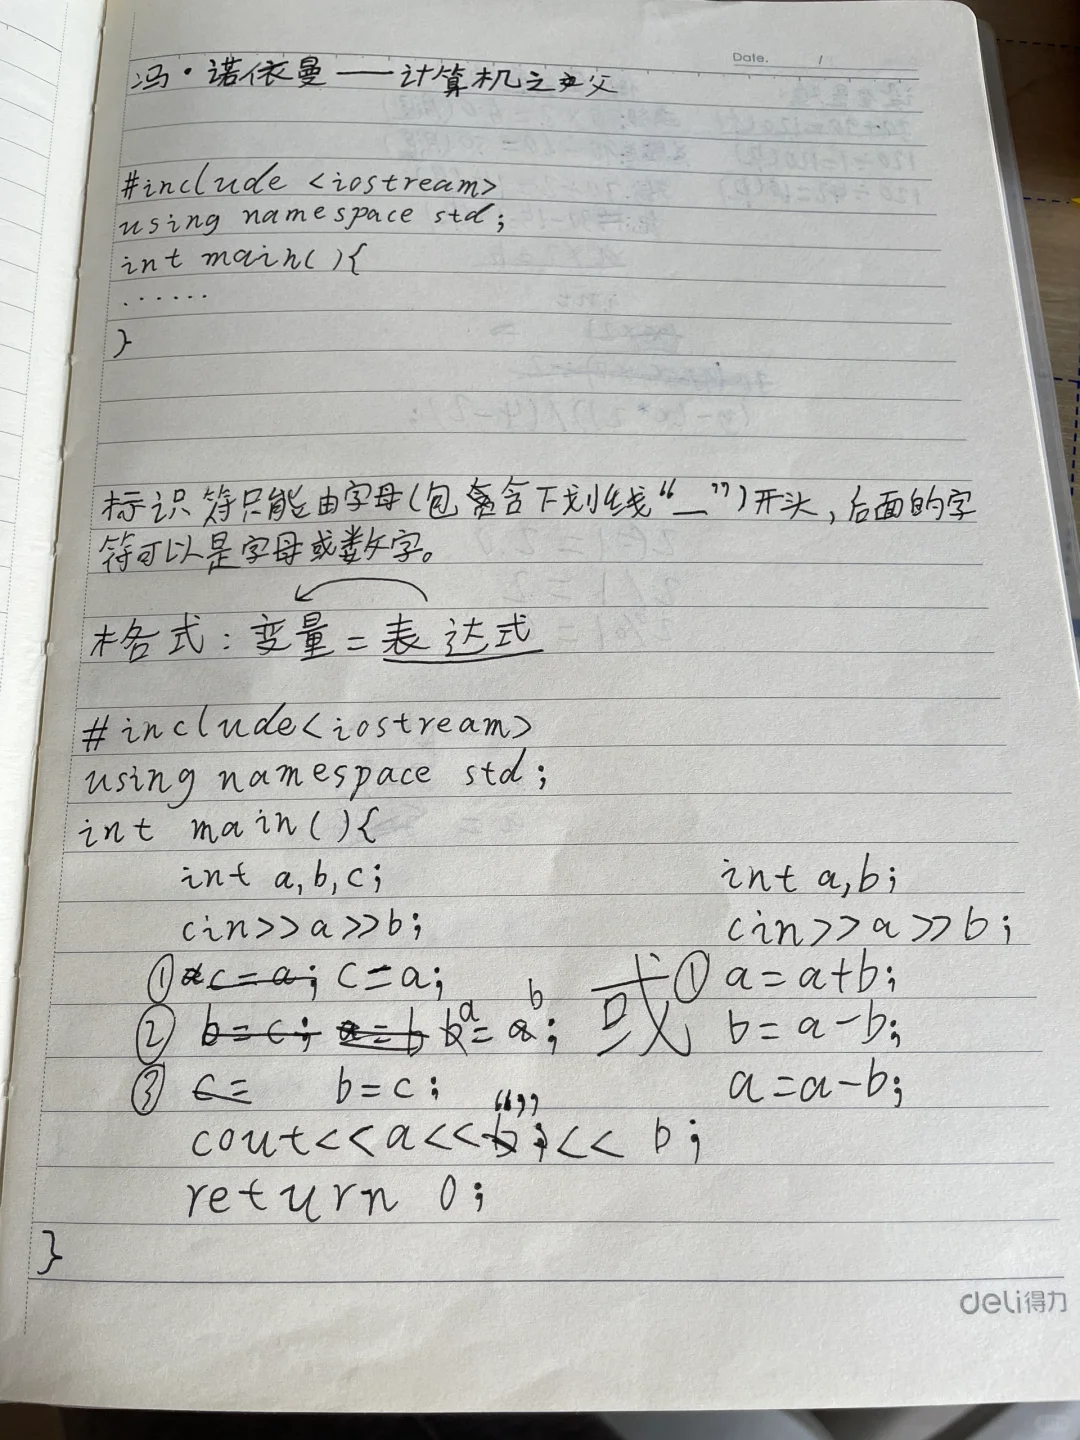 Date. /
冯·诺依曼——计算机之父
#include <iostream>
using namespace std;
int main(){
......
}
标识符只能由字母(包含下划线“_”)开头,后面的字
符可以是字母或数字。
格式:变量=表达式
#include<iostream>
using namespace std;
int main(){
int a,b,c; int a,b;
cin>>a>>b; cin>>a>>b;
① c=a; c=a; 或 ① a=a+b;
② b=c; a=b a=b; b=a-b;
③ c= b=c; a=a-b;
cout<<a<<“”<< b;
return 0;
}
deli得力